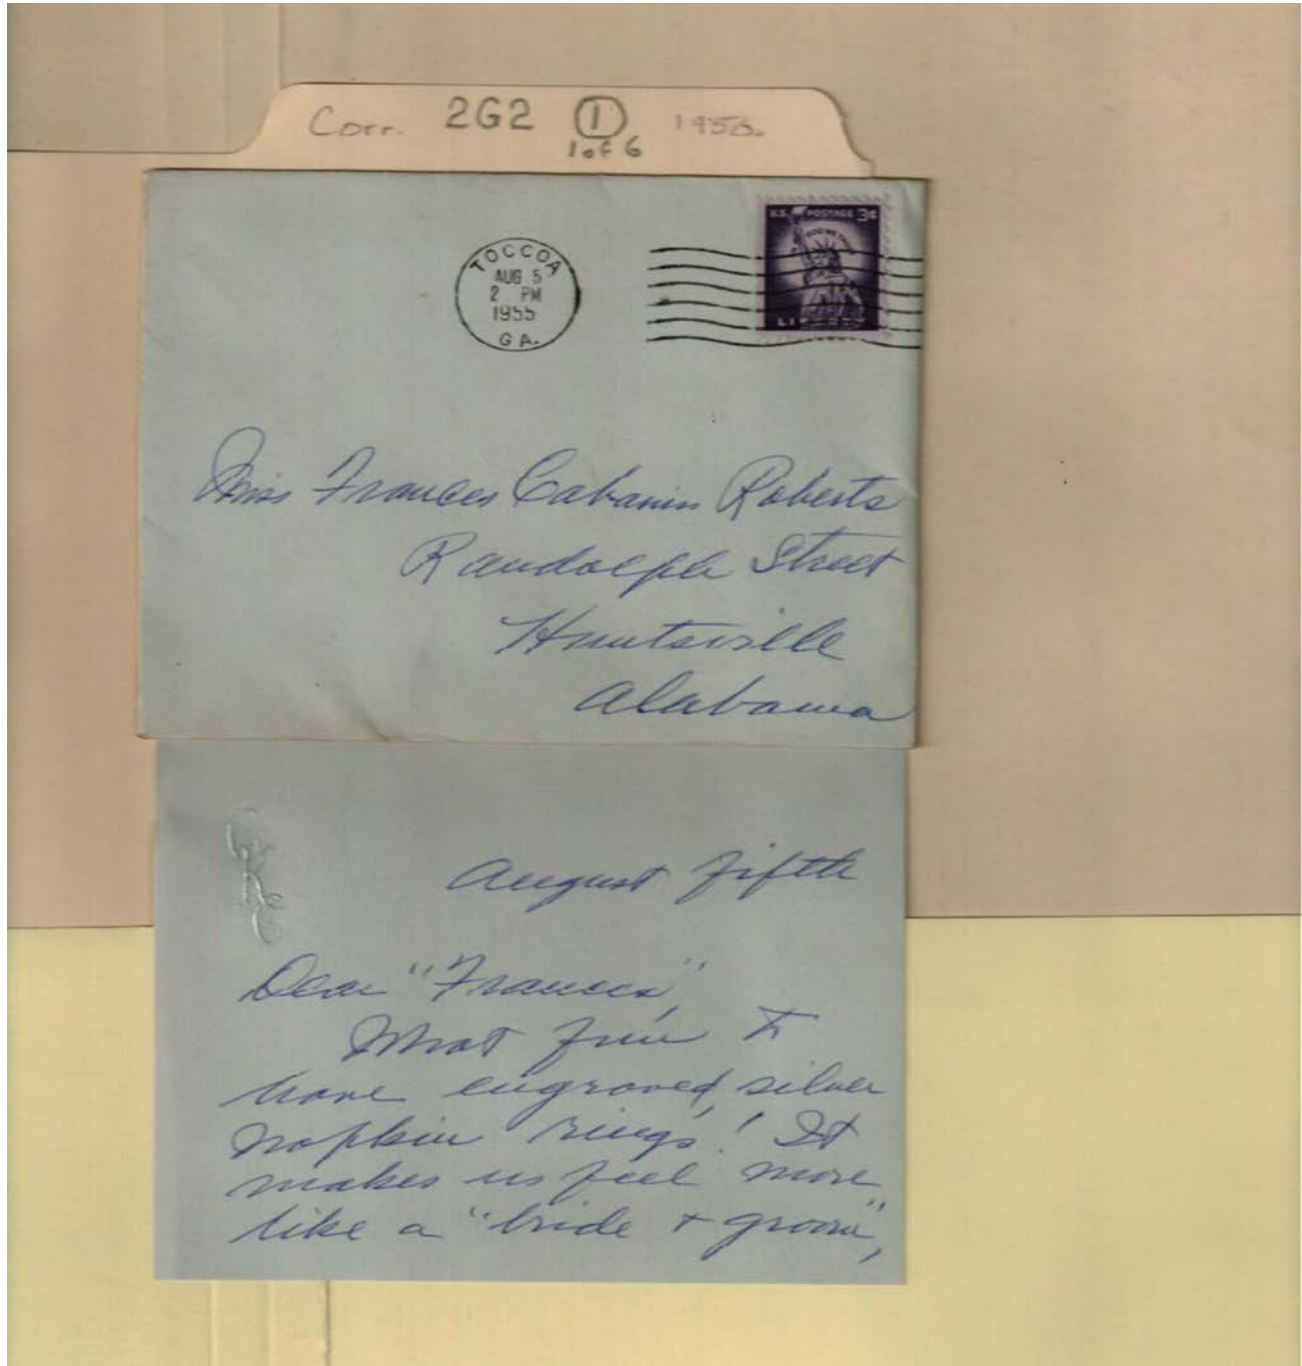 Corr. 2G2 1
1 of 6
TOCCOA
AUG 5
2 PM
1955
GA.
U.S. POSTAGE 3¢
IN GOD WE TRUST
LIBERTY
Miss Frances Cabaniss Roberts
Randolph Street
Huntsville
Alabama
August fifth
Dear "Frances",
What fun to
have engraved, silver
napkin rings! It
makes us feel more
like a "bride + groom",